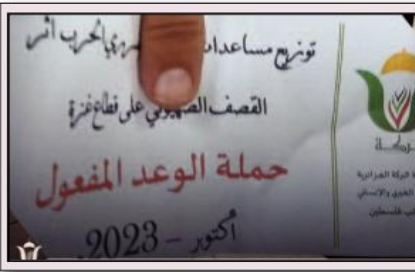 توزيع مساعدات لمتضرري الحرب اثر
القصف الصهيوني على قطاع غزة
حملة الوعد المفعول
أكتوبر - 2023.
البركة
البركة الجزائرية
الخيري والإنساني
فلسطين